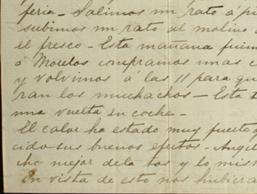 feria - Salimos un rato á pi
subimos un rato al molino
el fresco - Esta mañana fuim
á Morelos compramos unas c
y volvimos á las 11 para qu
ran los muchachos - Esta t
una vuelta en coche -
El calor ha estado muy fuerte y
cido sus buenos efectos - Angel
cho mejor de la tos y lo mism
En vista de esto nos hubiera